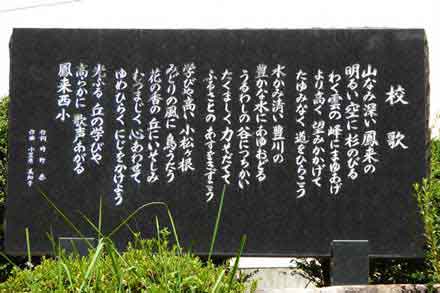 校歌
山なみ深い鳳来の
明るい空に杉のびる
わく雲の峰にまゆあげ
より高く望みかかげて
たゆみなく道をひらこう
水から清い豊川の
豊かな水にあゆおどる
うるわしの谷につちかい
たくましく力そだてて
ふるさとのあすをきずこう
学びや高い小松ヶ根
みどりの風に鳥うたう
花の香の丘にいそしみ
むつまじく心あわせて
ゆめひらくにじをかけよう
光ぶ丘の学びや
高らかに歌声あがる
鳳来西小
作詞
作曲